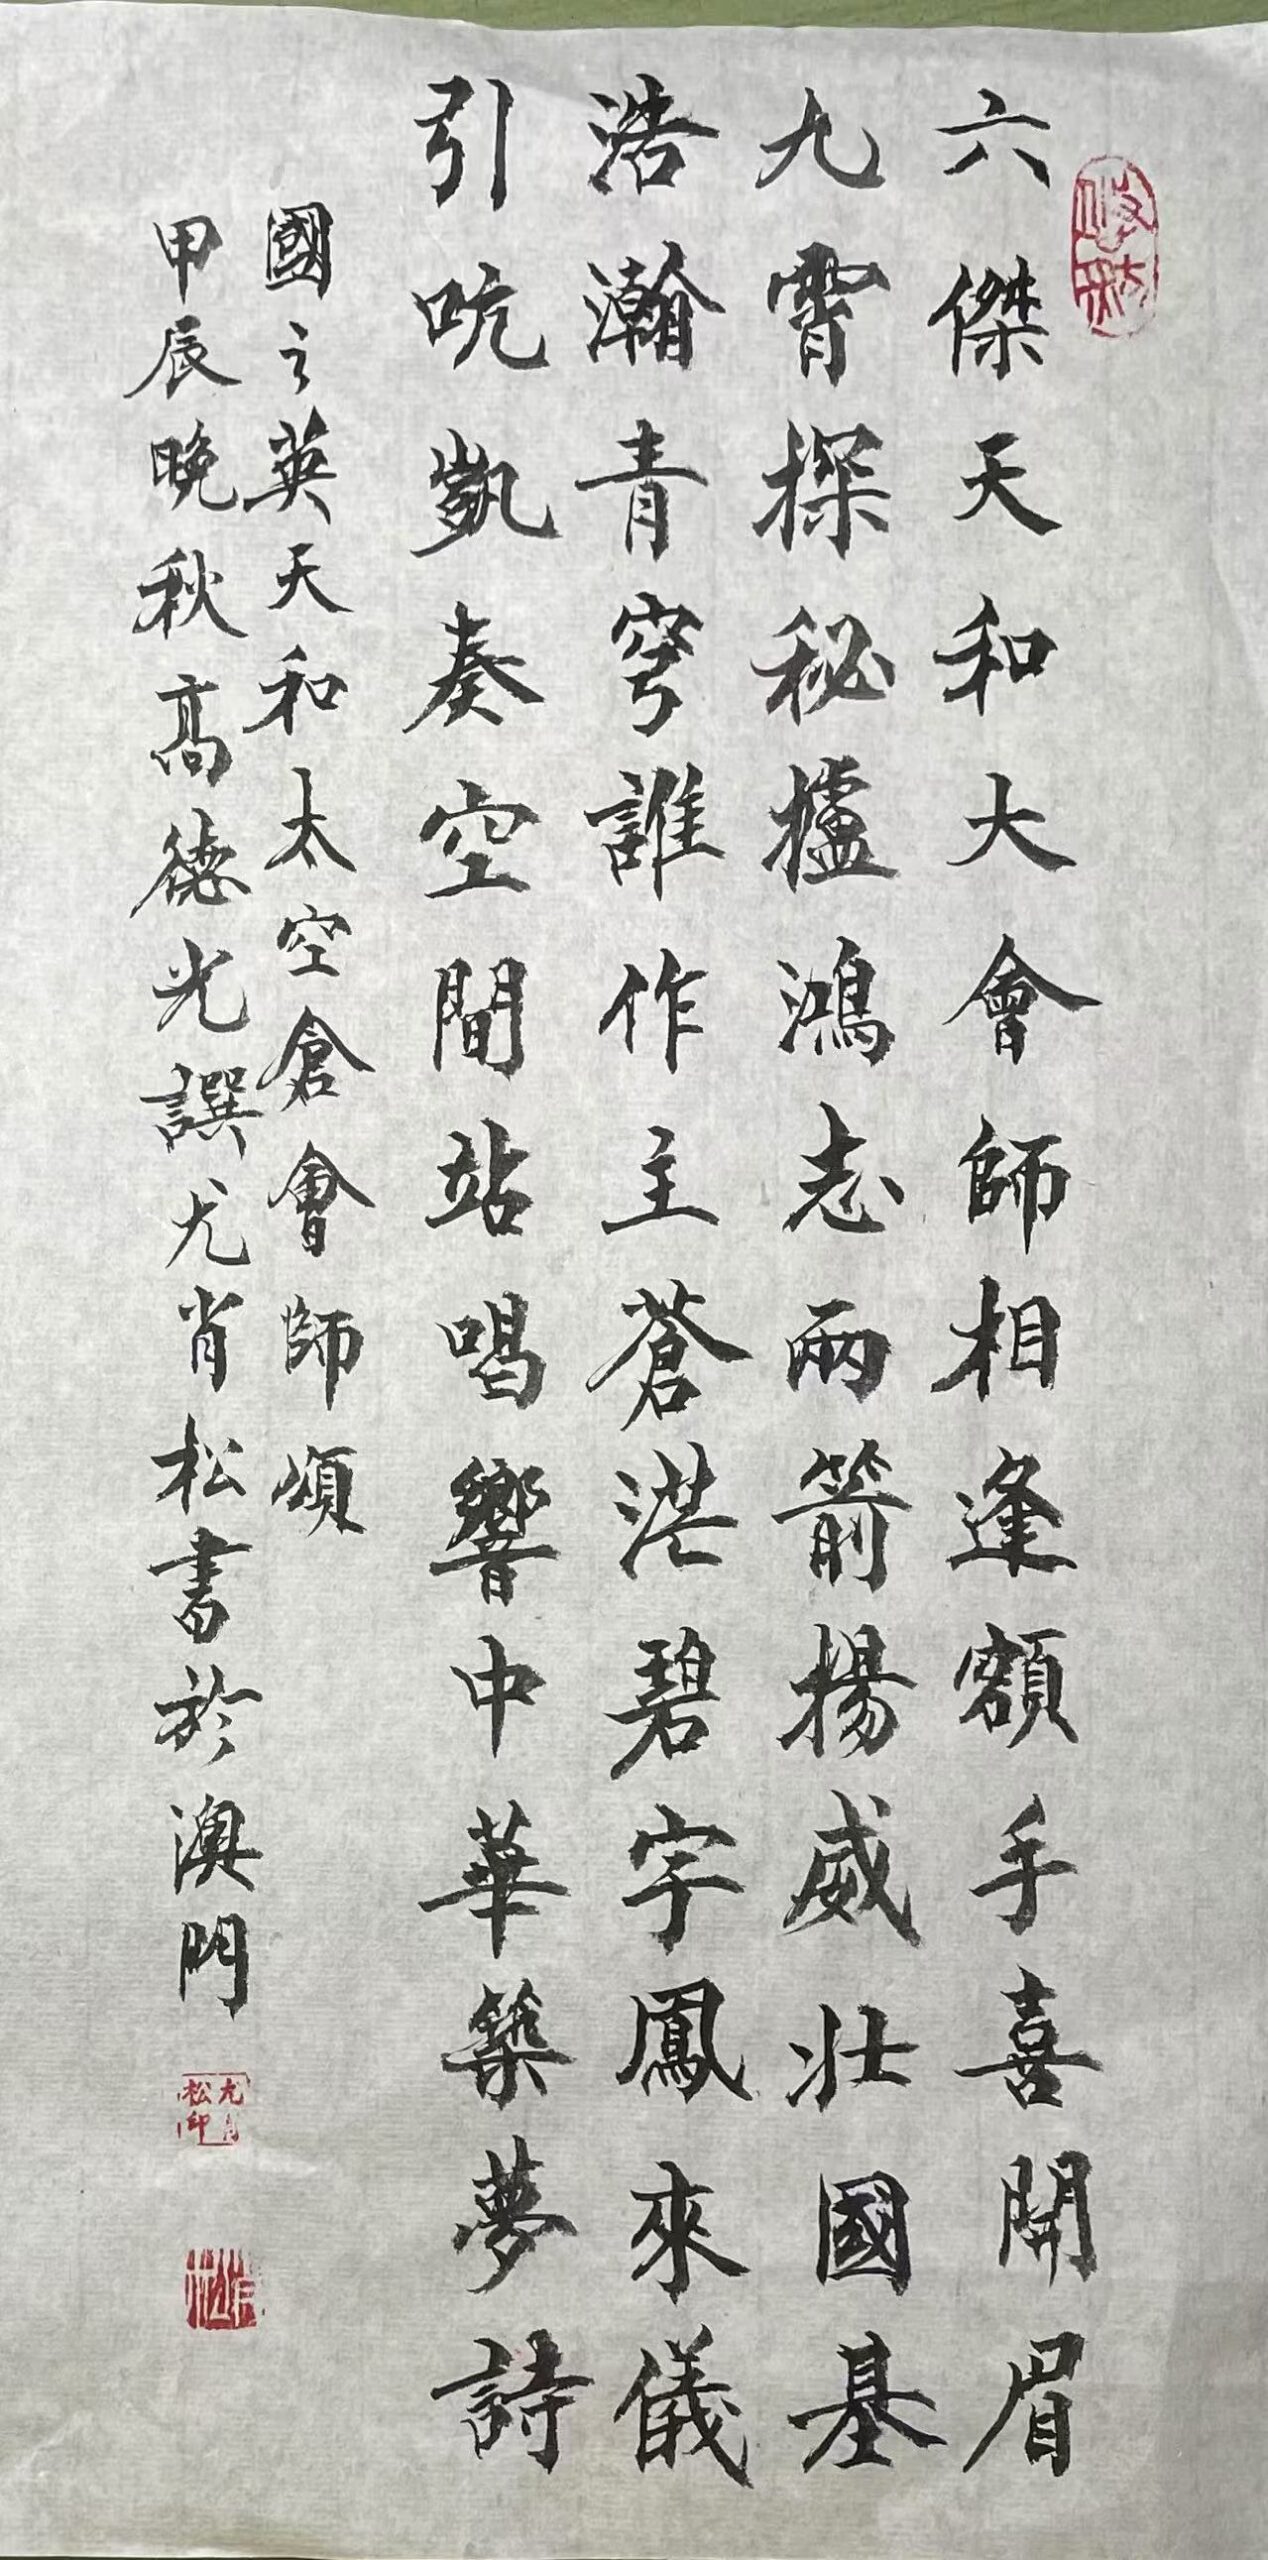 六傑天天和大會師相逢額手喜開眉
九霄探秘攄鴻志兩箭揚威壯國基
浩瀚青穹誰作主蒼茫碧宇鳳來儀
引吭凱奏空間站唱響中華築夢詩
國之英天和太空倉會師頌
甲辰晚秋高德光譔尤肖松書於澳門
尤肖松印